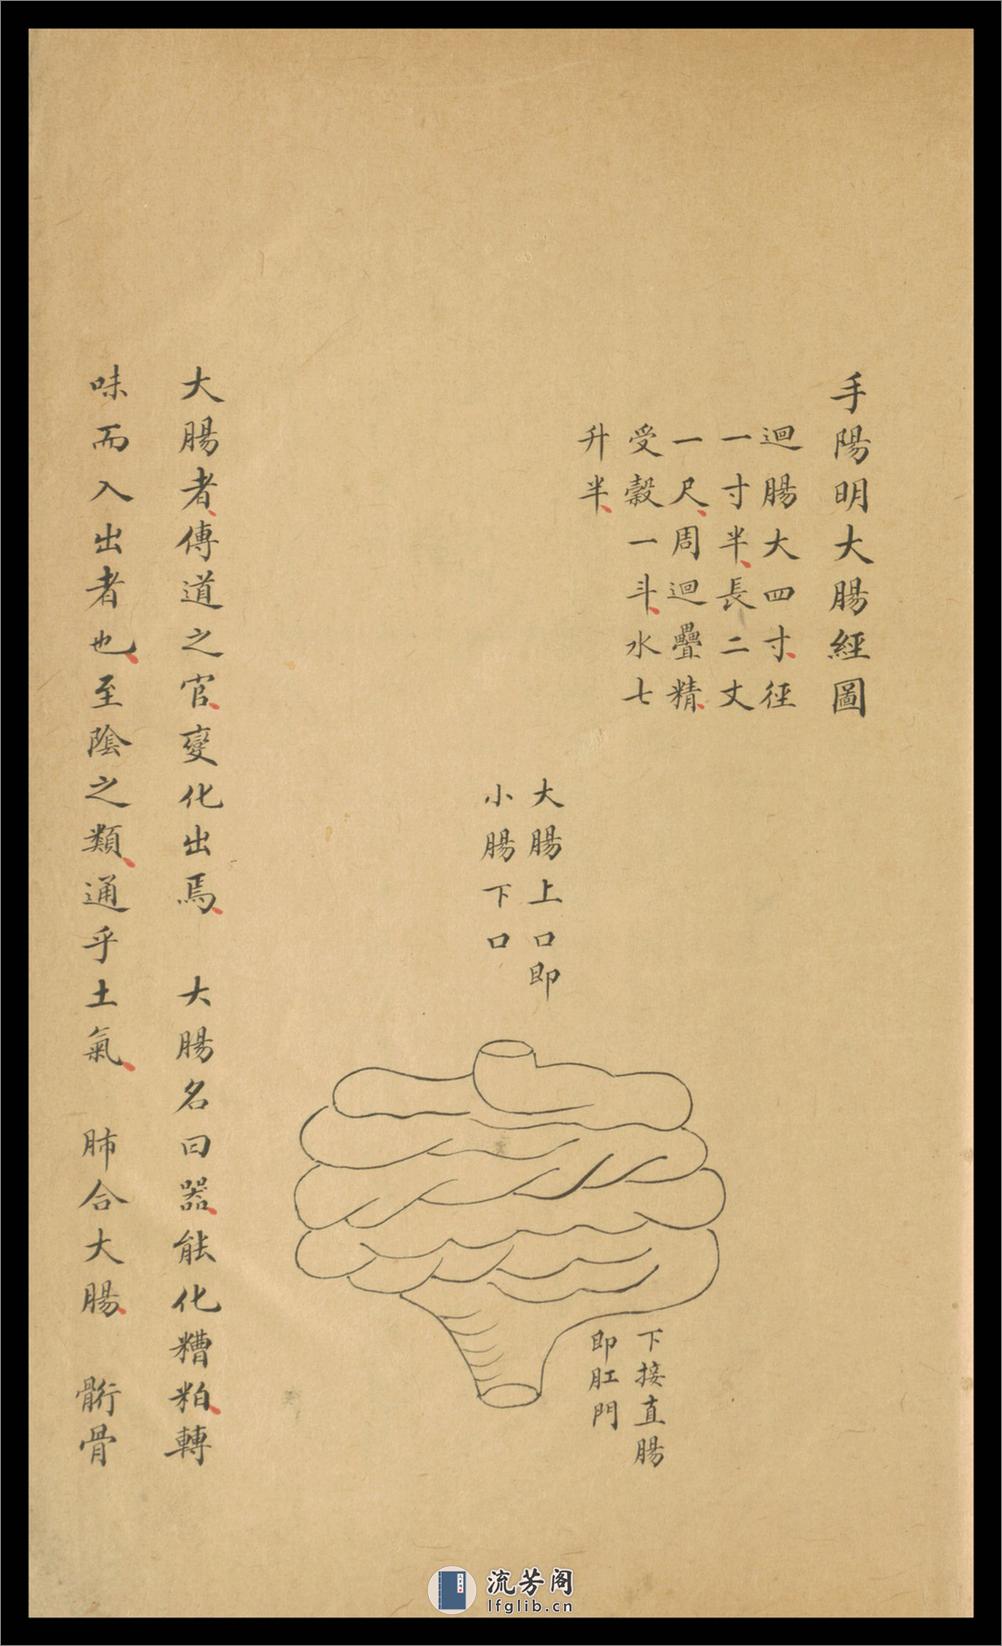 手陽明大腸經圖
迴腸大四寸、徑
一寸半、長二丈
一尺、周迴疊精、
受穀一斗、水七
升半、
大腸上口即
小腸下口
下接直腸
即肛門
大腸者、傳道之官、變化出焉、　大腸名曰器、能化糟粕、轉
味而入出者也、至陰之類、通乎土氣、　肺合大腸、　骱骨
流芳阁
lfglib.cn